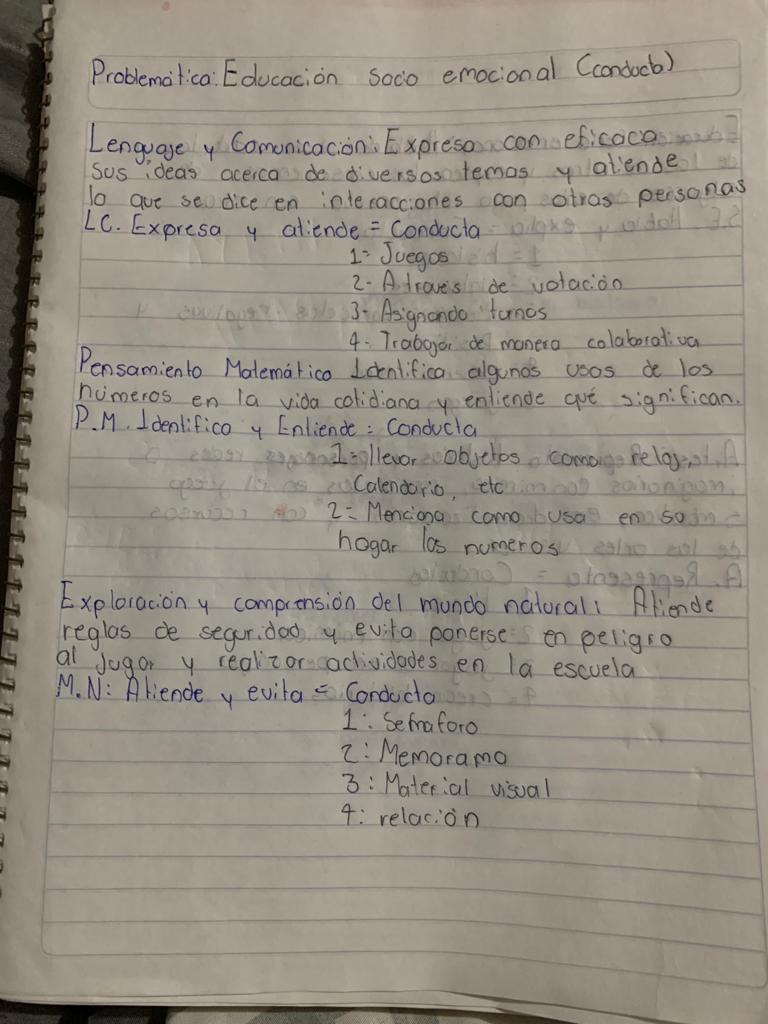 Problemática: Educación socio emocional (conducta)
Lenguaje y Comunicación: Expresa con eficaca
sus ideas acerca de diversos temas y atiende
lo que se dice en interacciones con otras personas
LC. Expresa y atiende = Conducta
1- Juegos
2- A través de votación
3- Asignando turnos
4- Trabajar de manera colaborativa
Pensamiento Matemático Identifica algunos usos de los
números en la vida cotidiana y entiende qué significan.
P.M. Identifico y Entiende = Conducta
1= llevar objetos como reloj,
Calendario, etc
2= Menciona como usa en su
hogar los numeros
Exploración y comprensión del mundo natural: Atiende
reglas de seguridad y evita ponerse en peligro
al jugar y realizar actividades en la escuela
M.N: Atiende y evita = Conducta
1: Semaforo
2: Memorama
3: Material visual
4: relación